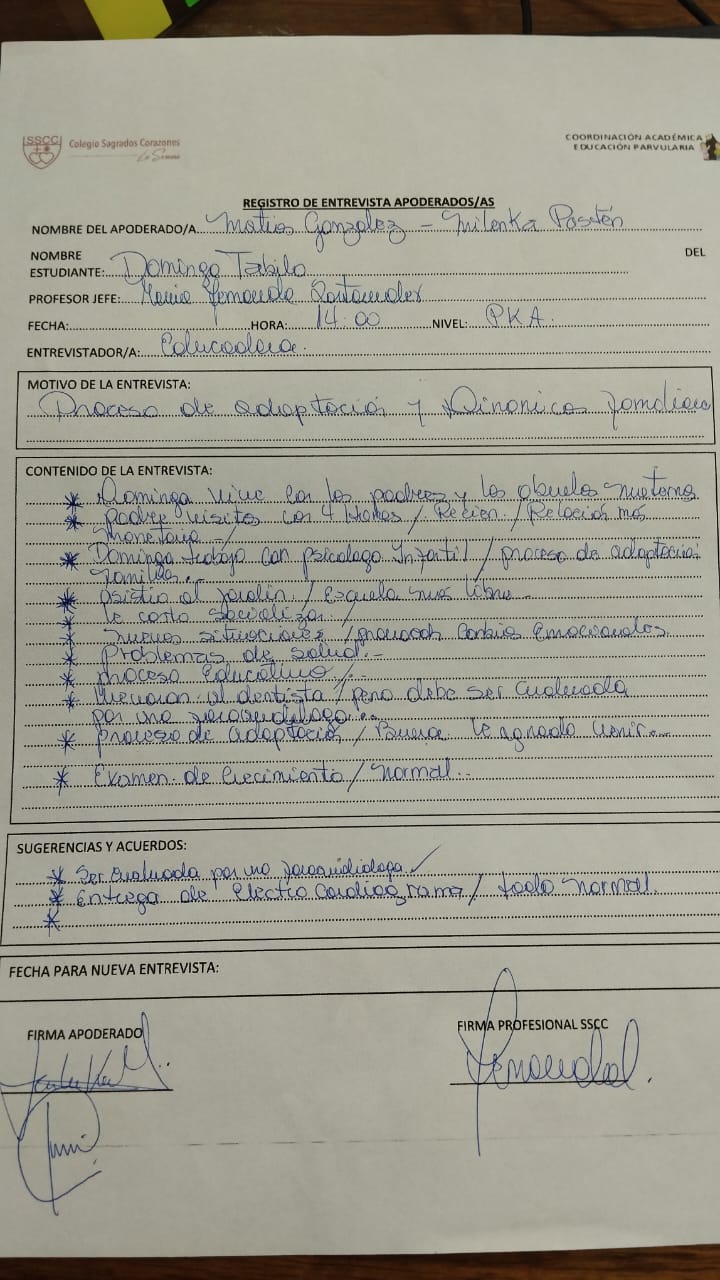 SSCC
Colegio Sagrados Corazones
La Serena
COORDINACIÓN ACADÉMICA
EDUCACIÓN PARVULARIA
REGISTRO DE ENTREVISTA APODERADOS/AS
NOMBRE DEL APODERADO/A Matias Gonzalez - Milenka Pastén
NOMBRE DEL
ESTUDIANTE: Dominga Tabilo
PROFESOR JEFE: Maria Fernanda Santander
FECHA: HORA: 14:00 NIVEL: PKA.
ENTREVISTADOR/A: Educadora.
MOTIVO DE LA ENTREVISTA:
Proceso de adaptación y Dinamicas familiares
CONTENIDO DE LA ENTREVISTA:
* Dominga vive con los padres y los abuelos materna
* padre visitas con 4 / Recien / Relación mas
monetaria -/
* Dominga trabajo con psicologo Infantil / proceso de adaptación
familia..
* asistio al jardin / Escuela mas libre.
* le costo socializar /
* nuevas situaciones / provocan cambios Emocionales.
* Problemas de salud.-
* proceso Educativo /.
* llevaron al dentista / pero debe ser evaluada
por una fonoaudiologa..
* proceso de adaptación / Buena le agrado venir...
* Examen de Crecimiento / normal..
SUGERENCIAS Y ACUERDOS:
* Ser evaluada por una fonoaudiologa ✓
* Entrega de Electro Cardiograma / todo normal.
*
FECHA PARA NUEVA ENTREVISTA:
FIRMA APODERADO
FIRMA PROFESIONAL SSCC